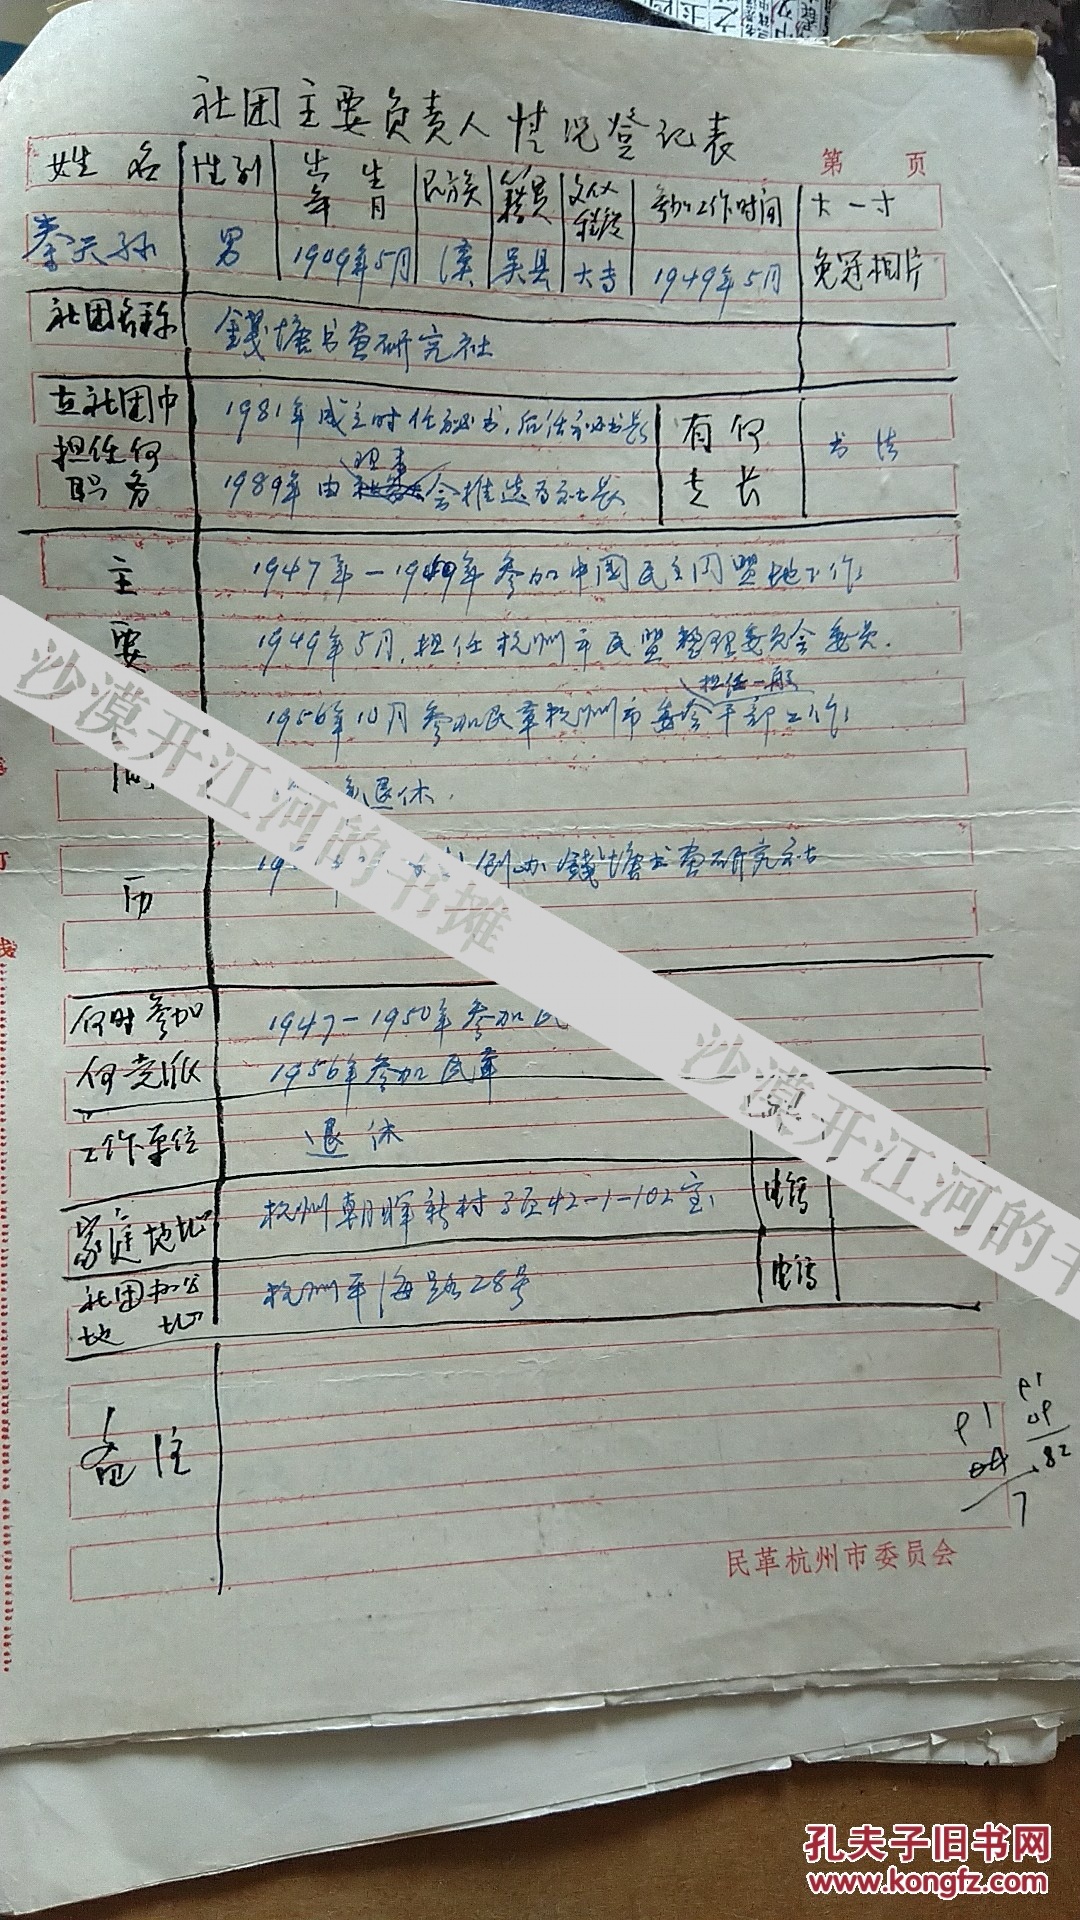 社团主要负责人情况登记表
第 页
姓名 性别 出生年月 民族 籍贯 文化程度 参加工作时间 大一寸
秦天孙 男 1909年5月 汉 吴县 大专 1949年5月 免冠相片
社团名称 錢塘书画研究社
在社团中担任何职务 1981年成立时任秘书,后任秘书长
有何专长 书法
理事
1989年由会推选为社长
主要简历
1947年—1949年参加中国民主同盟地下工作
1949年5月,担任杭州市民盟整理委员会委员.
担任一般
1956年10月参加民革杭州市委会干部工作
退休.
创办錢塘书画研究社
何时参加何党派 1947—1950年参加民
1956年参加民革
工作单位 退休
家庭地址 杭州朝晖新村3区42-1-102室 电话
社团办公地址 杭州平海路28号 电话
备注
民革杭州市委员会
沙漠开江河的书摊
沙漠开江河的书
孔夫子旧书网
www.kongfz.com